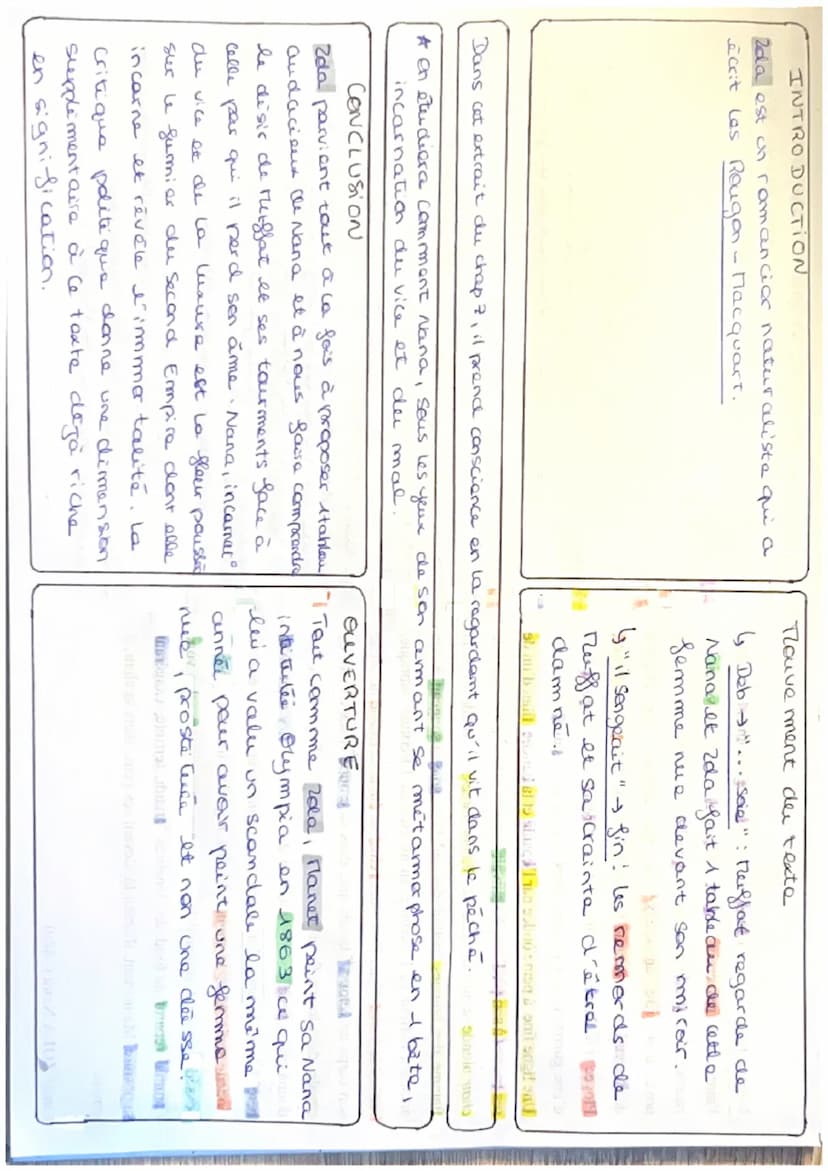 INTRODUCTION
Zola est un romancier naturaliste qui a
écrit les Rougon-Macquart.
Mouvement du texte
↳ Deb → "... soie" : Muffat regarde de
Nana et Zola fait 1 tableau de cette
femme nue devant son miroir.
↳ "il songeait" → fin : les remords de
Muffat et sa crainte d'être
damné.
Dans cet extrait du chap 7, il prend conscience en la regardant qu'il vit dans le péché.
* on étudiera comment Nana, sous les yeux de son amant se métamorphose en 1 bête,
incarnation du vice et du mal.
CONCLUSION
Zola parvient tout à la fois à proposer 1 tableau
audacieux de Nana et à nous faire comprendre
le désir de Muffat et ses tourments face à
celle par qui il perd son âme. Nana, incarnat°
du vice et de la luxure est la fleur poussée
sur le fumier du second Empire dont elle
incarne et révèle l'immortalité. La
critique politique donne une dimension
supplémentaire à ce texte déjà riche
en signification.
OUVERTURE
Tout comme Zola, Manet peint sa Nana
intitulée Olympia en 1863 ce qui
lui a valu un scandale la même
année pour avoir peint une femme
nue, prostituée et non une déesse.